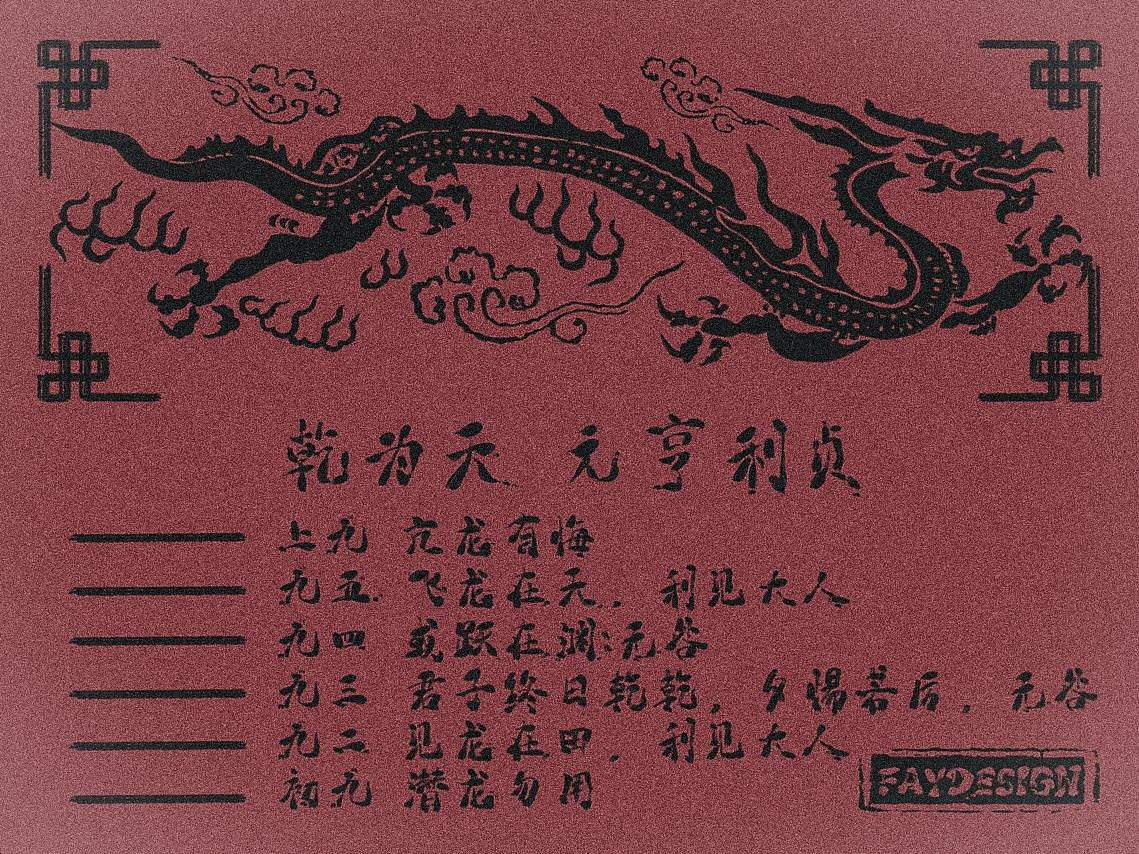 乾为天 元亨利贞
上九 亢龙有悔
九五 飞龙在天，利见大人
九四 或跃在渊：元咎
九三 君子终日乾乾，夕惕若后，元咎
九二 见龙在田，利见大人
初九 潜龙勿用
FAYDESIGN